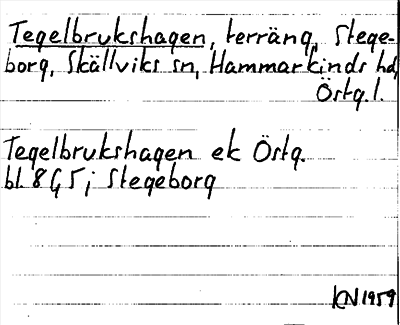 Tegelbrukshagen, terräng, Stege-
borg, Skällviks sn, Hammarkinds hd,
Östg. l.
Tegelbrukshagen ek Östg.
bl. 8G5j Stegeborg
KN 1959